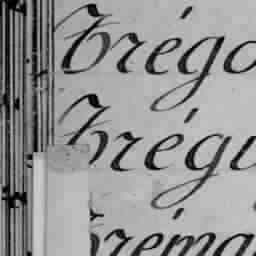 Trégo
Trégu
Tréma